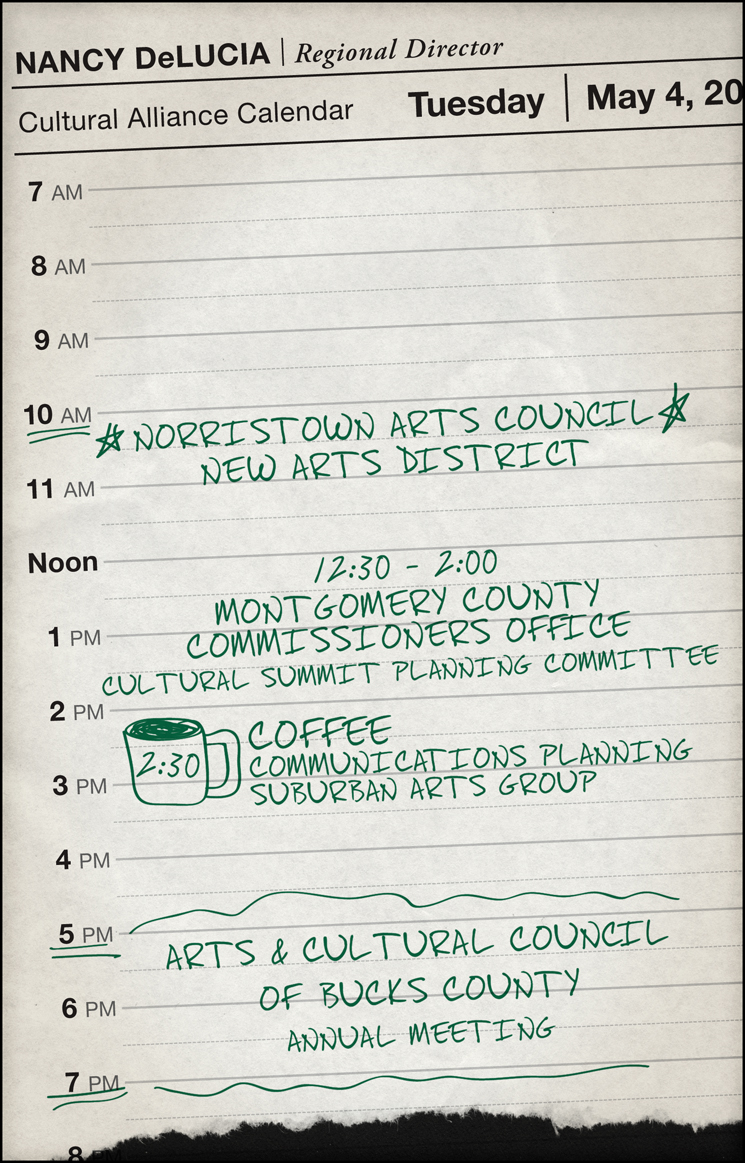 NANCY DeLUCIA | Regional Director
Cultural Alliance Calendar Tuesday | May 4, 20
7 AM
8 AM
9 AM
10 AM
NORRISTOWN ARTS COUNCIL
NEW ARTS DISTRICT
11 AM
Noon
12:30 - 2:00
MONTGOMERY COUNTY
1 PM
COMMISSIONERS OFFICE
CULTURAL SUMMIT PLANNING COMMITTEE
2 PM
COFFEE
2:30
COMMUNICATIONS PLANNING
3 PM
SUBURBAN ARTS GROUP
4 PM
5 PM
ARTS & CULTURAL COUNCIL
OF BUCKS COUNTY
6 PM
ANNUAL MEETING
7 PM
8 PM